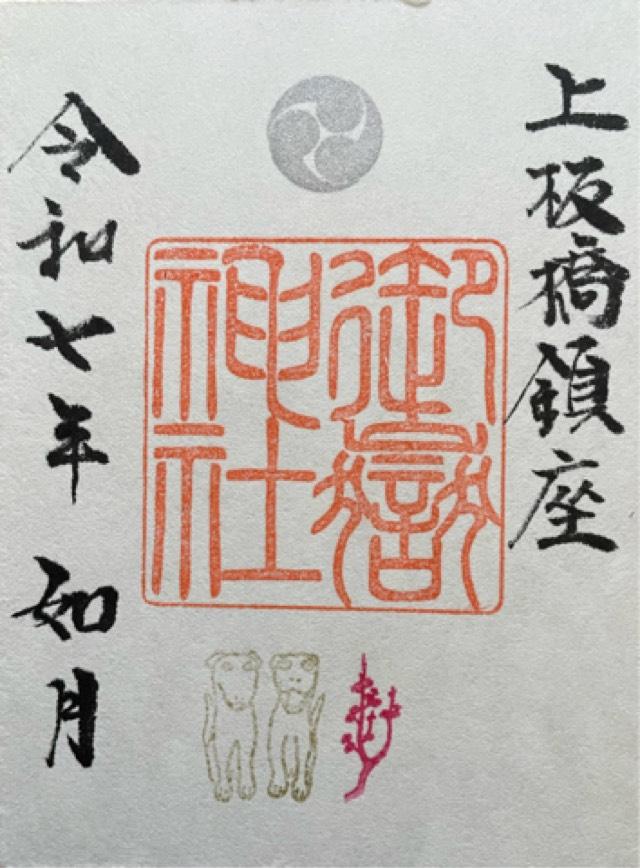 上板橋鎮座
御嶽
神社
令和七年 如月